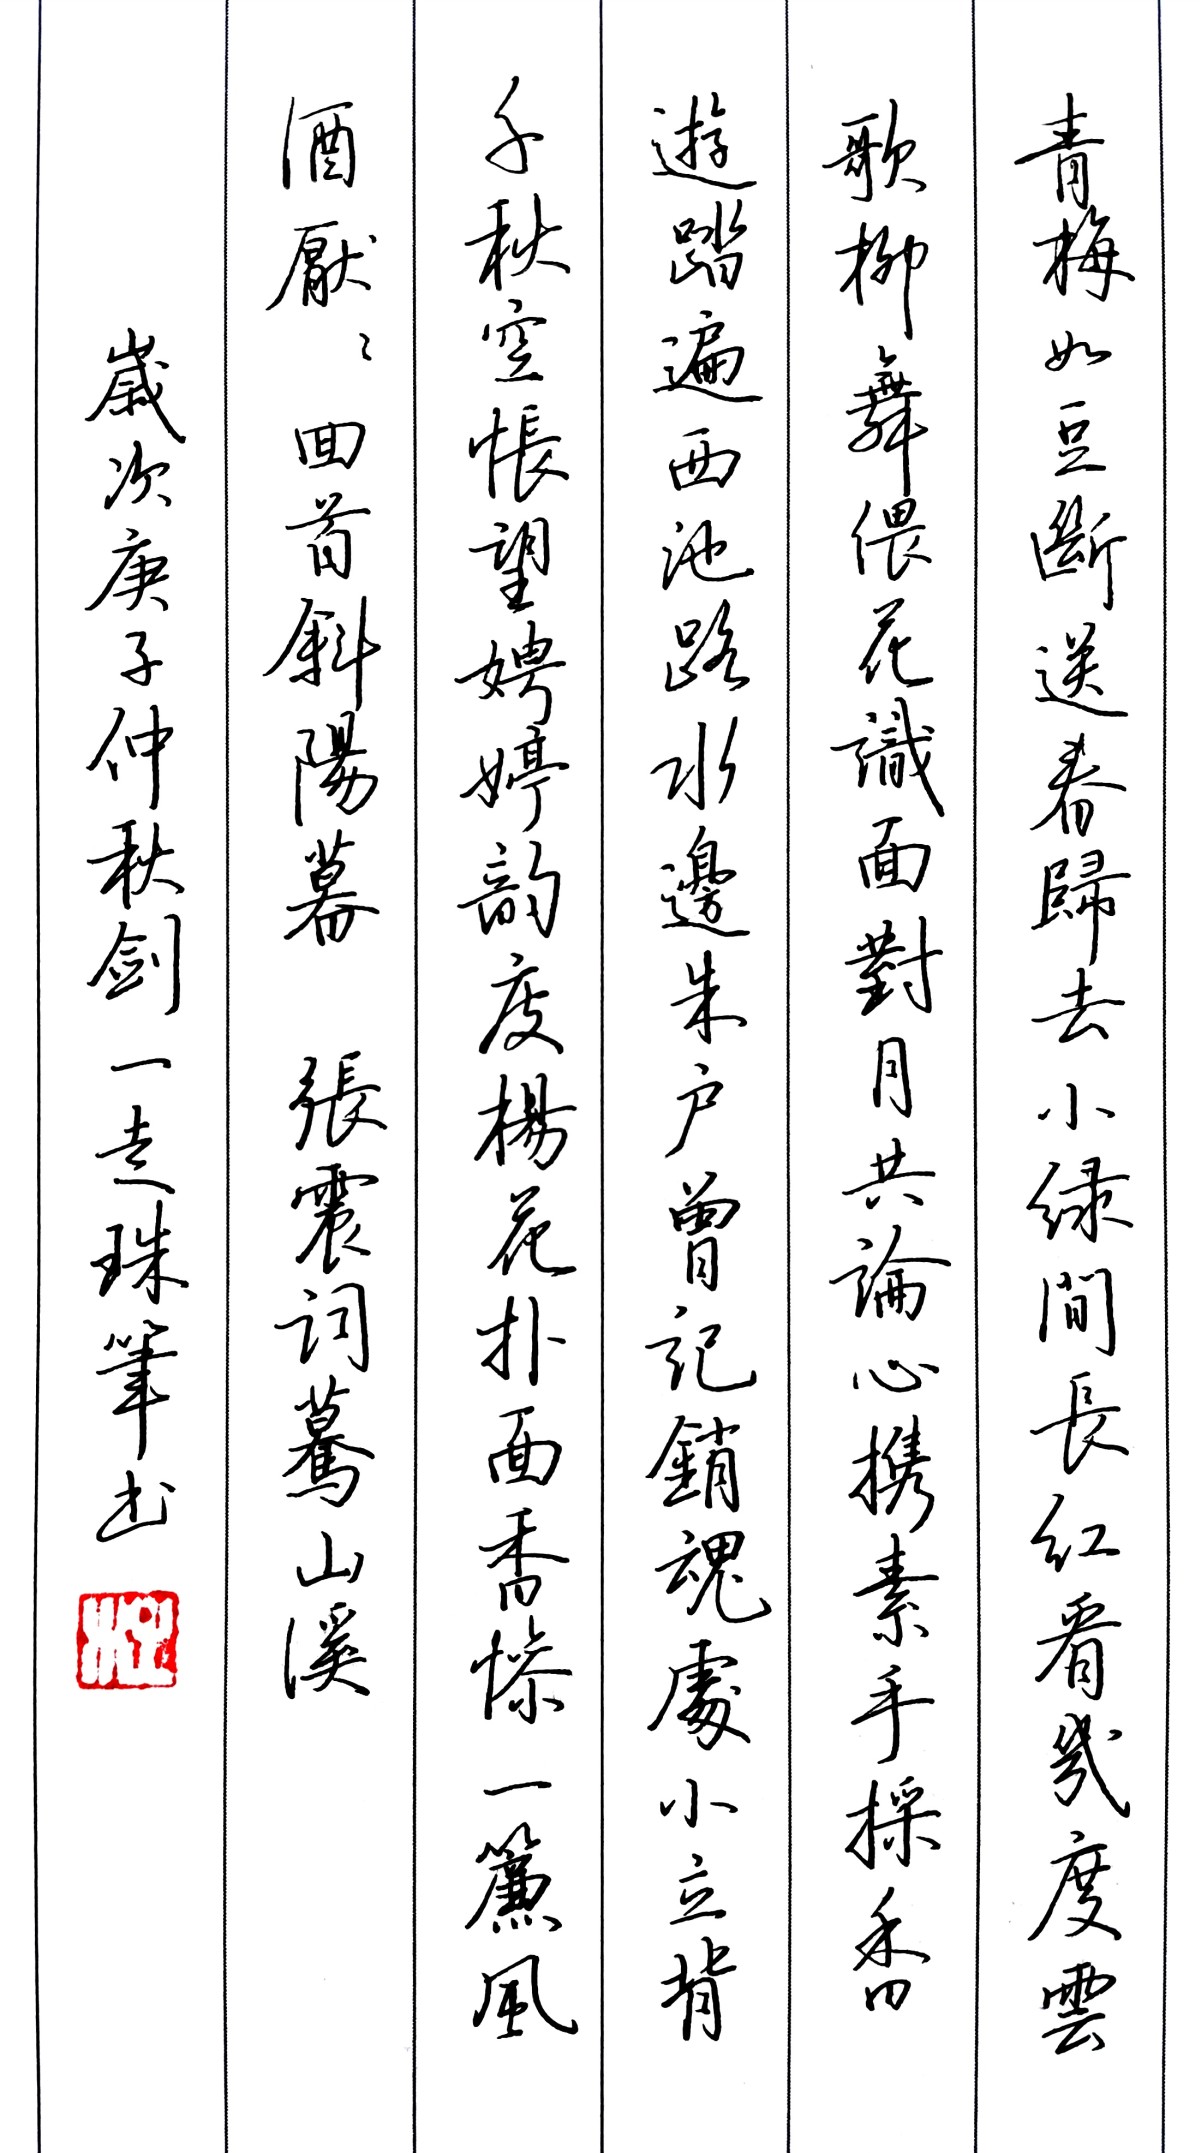 青梅如豆斷送春歸去小綠間長紅看幾度雲
歌柳舞偎花識面對月共論心携素手採香
遊踏遍西池路水邊朱户曾記銷魂處小立背
千秋空悵望娉婷韵度楊花扑面香慘一簾風
酒厭〻回首斜陽暮 張震词驀山溪
歲次庚子仲秋剑一走珠筆书